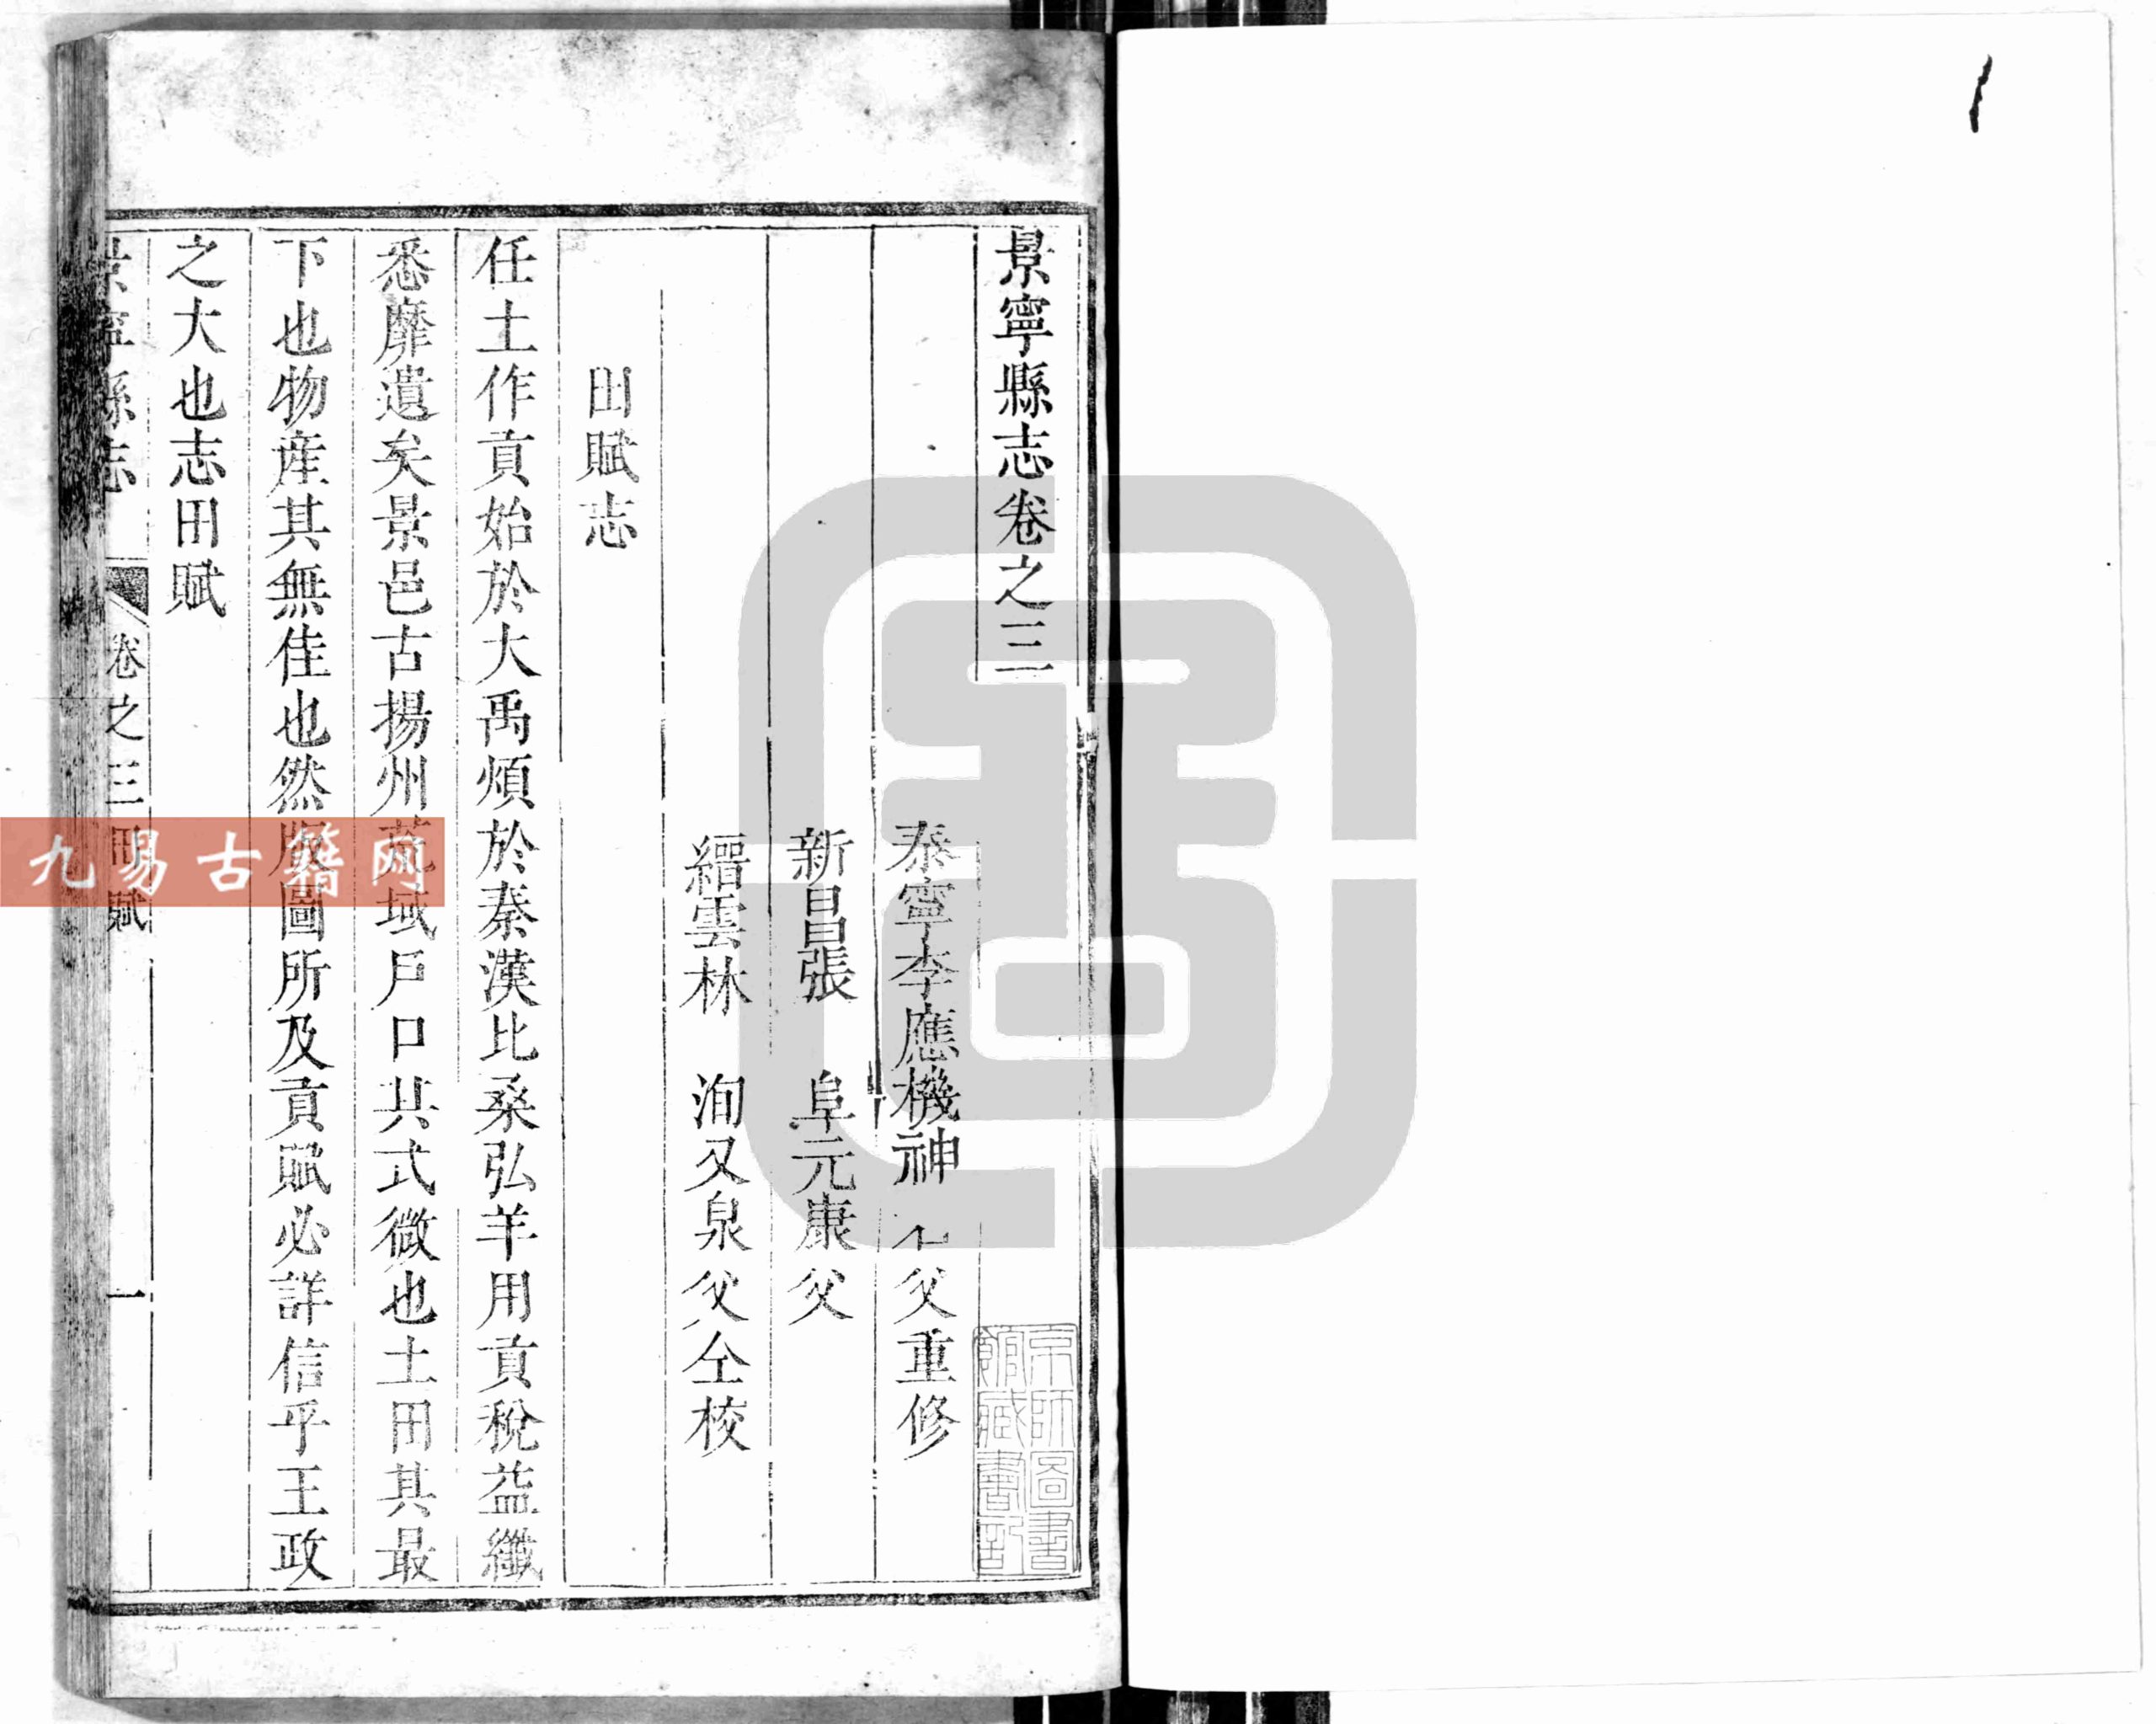 景寧縣志卷之三
泰寧李應機神 父重修
新昌張 阜元康父
縉雲林 洵又泉父仝校
田賦志
任土作貢始於大禹煩於秦漢比桑弘羊用貢稅益纖
悉靡遺矣景邑古揚州荒域戶口其式微也土田其最
下也物産其無佳也然版圖所及貢賦必詳信乎王政
之大也志田賦
景寧縣志 卷之三田賦 一
京師圖書
館藏書記
九易古籍网